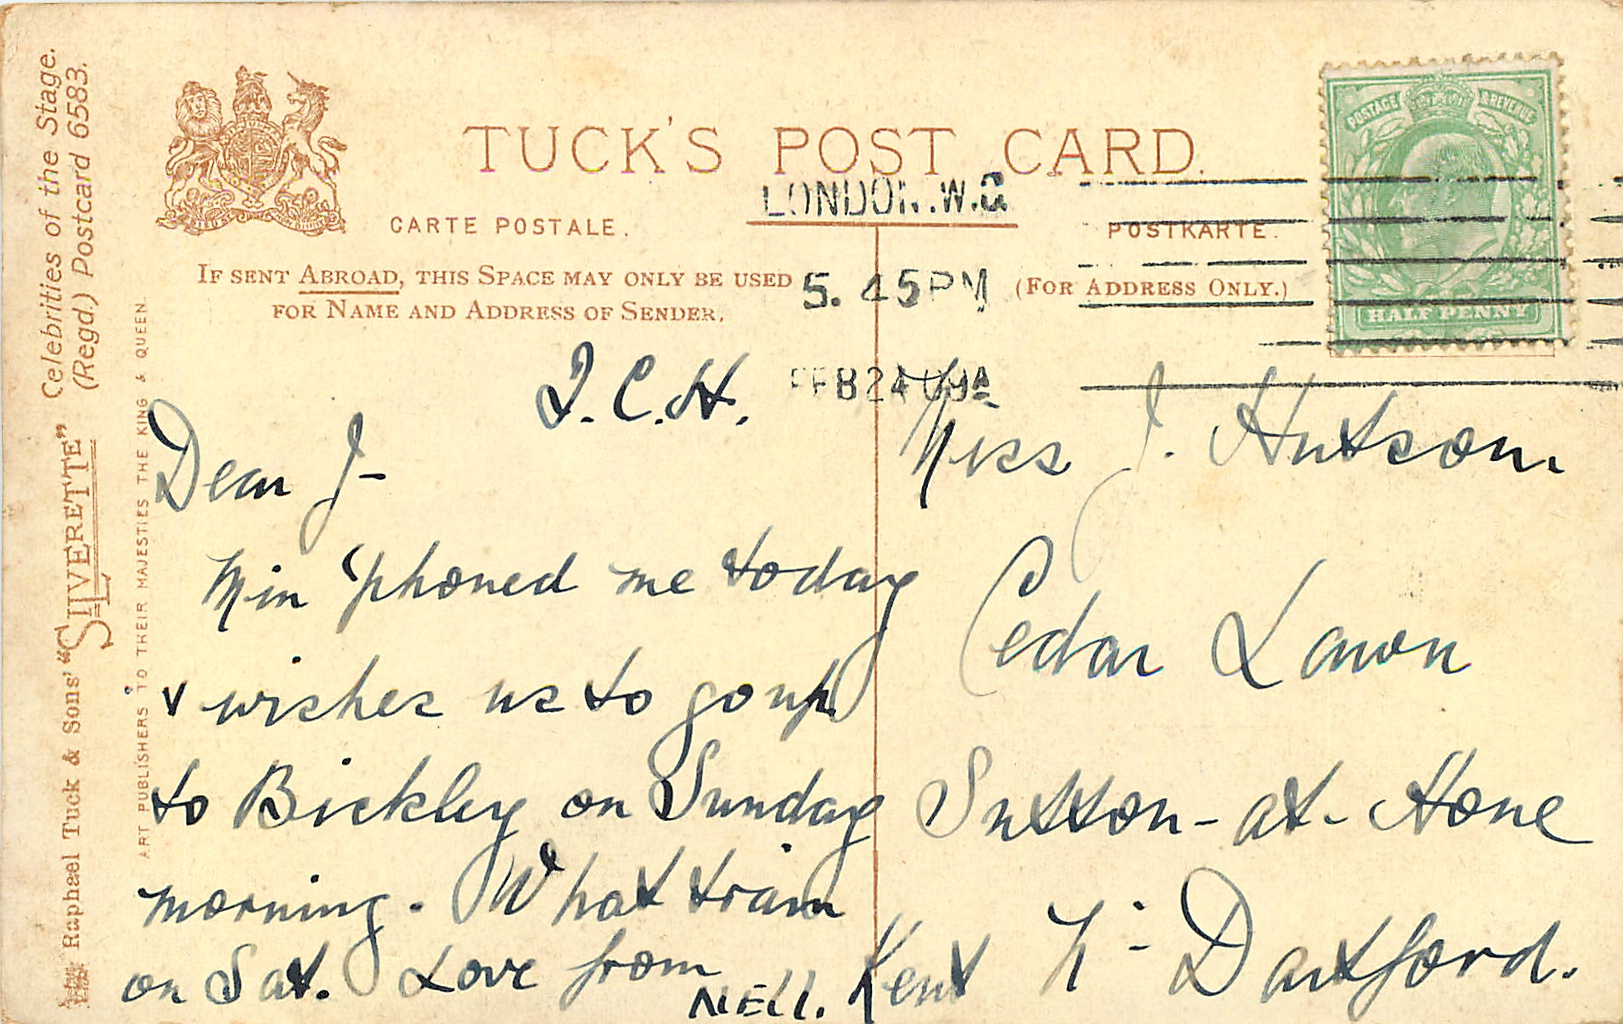 Celebrities of the Stage.
(Regd.) Postcard 6583.
Raphael Tuck & Sons' "SILVERETTE"
ART PUBLISHERS TO THEIR MAJESTIES THE KING & QUEEN.
TUCK'S POST CARD.
CARTE POSTALE.
POSTKARTE.
IF SENT ABROAD, THIS SPACE MAY ONLY BE USED
FOR NAME AND ADDRESS OF SENDER.
(FOR ADDRESS ONLY.)
POSTAGE & REVENUE
HALF PENNY
LONDON. W.C
5. 45 PM
FEB 24 09
J. C. H.
Dear J-
Min 'phoned me today
& wishes us to go up
to Bickley on Sunday
morning. What train
on Sat. Love from
NELL.
Miss J. Hutson.
Cedar Lawn
Sutton-at-Hone
Nr Dartford.
Kent